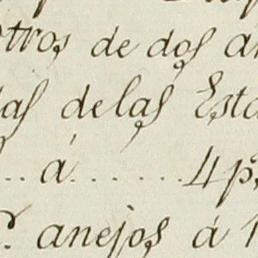 otros de dos an
las de las Esta
.. á ....... 4 ps
rs. anejos á 1